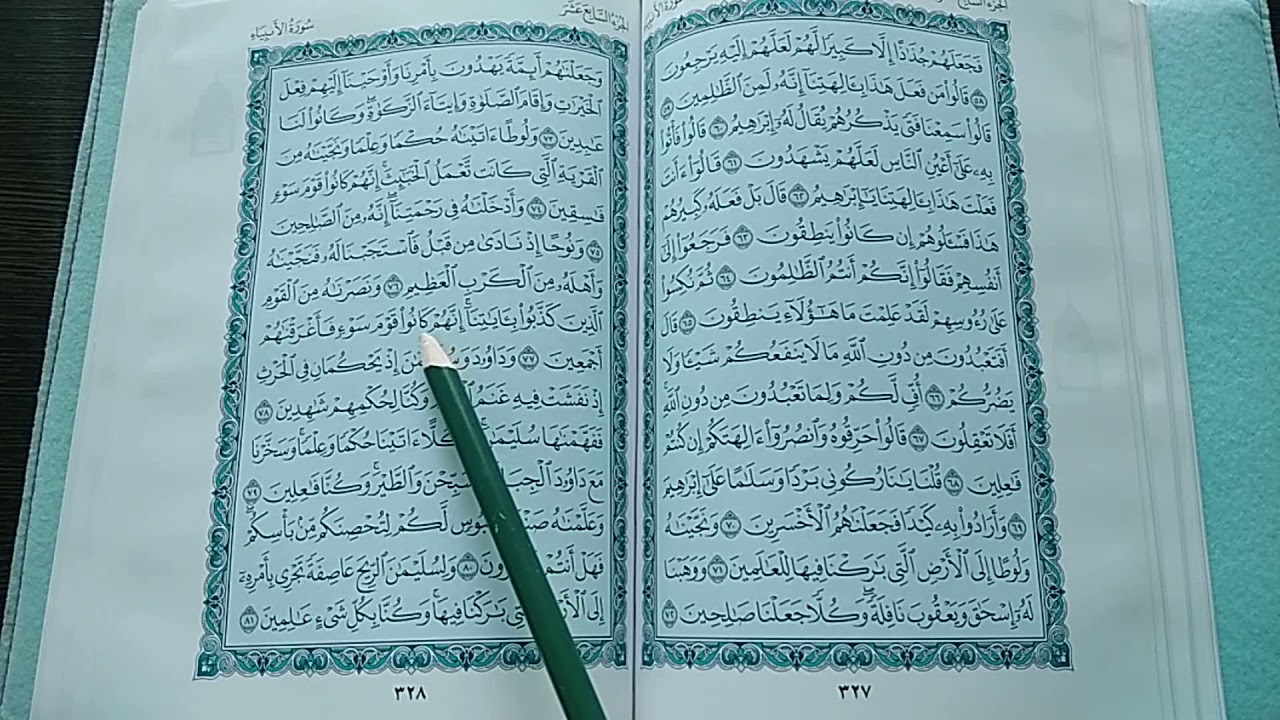 الجزء السابع عشر
سورة الأنبياء
فَجَعَلَهُمْ جُذَٰذًا إِلَّا كَبِيرًا لَّهُمْ لَعَلَّهُمْ إِلَيْهِ يَرْجِعُونَ
٥٨ قَالُوا۟ مَن فَعَلَ هَٰذَا بِـَٔالِهَتِنَآ إِنَّهُۥ لَمِنَ ٱلظَّٰلِمِينَ ٥٩
قَالُوا۟ سَمِعْنَا فَتًى يَذْكُرُهُمْ يُقَالُ لَهُۥٓ إِبْرَٰهِيمُ ٦٠ قَالُوا۟ فَأْتُوا۟
بِهِۦ عَلَىٰٓ أَعْيُنِ ٱلنَّاسِ لَعَلَّهُمْ يَشْهَدُونَ ٦١ قَالُوٓا۟ ءَأَنتَ
فَعَلْتَ هَٰذَا بِـَٔالِهَتِنَا يَٰٓإِبْرَٰهِيمُ ٦٢ قَالَ بَلْ فَعَلَهُۥ كَبِيرُهُمْ
هَٰذَا فَسْـَٔلُوهُمْ إِن كَانُوا۟ يَنطِقُونَ ٦٣ فَرَجَعُوٓا۟ إِلَىٰٓ
أَنفُسِهِمْ فَقَالُوٓا۟ إِنَّكُمْ أَنتُمُ ٱلظَّٰلِمُونَ ٦٤ ثُمَّ نُكِسُوا۟
عَلَىٰ رُءُوسِهِمْ لَقَدْ عَلِمْتَ مَا هَٰٓؤُلَآءِ يَنطِقُونَ ٦٥ قَالَ
أَفَتَعْبُدُونَ مِن دُونِ ٱللَّهِ مَا لَا يَنفَعُكُمْ شَيْـًٔا وَلَا
يَضُرُّكُمْ ٦٦ أُفٍّ لَّكُمْ وَلِمَا تَعْبُدُونَ مِن دُونِ ٱللَّهِ
أَفَلَا تَعْقِلُونَ ٦٧ قَالُوا۟ حَرِّقُوهُ وَٱنصُرُوٓا۟ ءَالِهَتَكُمْ إِن كُنتُمْ
فَٰعِلِينَ ٦٨ قُلْنَا يَٰنَارُ كُونِى بَرْدًا وَسَلَٰمًا عَلَىٰٓ إِبْرَٰهِيمَ
٦٩ وَأَرَادُوا۟ بِهِۦ كَيْدًا فَجَعَلْنَٰهُمُ ٱلْأَخْسَرِينَ ٧٠ وَنَجَّيْنَٰهُ
وَلُوطًا إِلَى ٱلْأَرْضِ ٱلَّتِى بَٰرَكْنَا فِيهَا لِلْعَٰلَمِينَ ٧١ وَوَهَبْنَا
لَهُۥٓ إِسْحَٰقَ وَيَعْقُوبَ نَافِلَةً وَكُلًّا جَعَلْنَا صَٰلِحِينَ ٧٢
٣٢٧
الجزء السابع عشر
سورة الأنبياء
وَجَعَلْنَٰهُمْ أَئِمَّةً يَهْدُونَ بِأَمْرِنَا وَأَوْحَيْنَآ إِلَيْهِمْ فِعْلَ
ٱلْخَيْرَٰتِ وَإِقَامَ ٱلصَّلَوٰةِ وَإِيتَآءَ ٱلزَّكَوٰةِ وَكَانُوا۟ لَنَا
عَٰبِدِينَ ٧٣ وَلُوطًا ءَاتَيْنَٰهُ حُكْمًا وَعِلْمًا وَنَجَّيْنَٰهُ مِنَ
ٱلْقَرْيَةِ ٱلَّتِى كَانَت تَّعْمَلُ ٱلْخَبَٰٓئِثَ إِنَّهُمْ كَانُوا۟ قَوْمَ سَوْءٍ
فَٰسِقِينَ ٧٤ وَأَدْخَلْنَٰهُ فِى رَحْمَتِنَآ إِنَّهُۥ مِنَ ٱلصَّٰلِحِينَ
٧٥ وَنُوحًا إِذْ نَادَىٰ مِن قَبْلُ فَٱسْتَجَبْنَا لَهُۥ فَنَجَّيْنَٰهُ
وَأَهْلَهُۥ مِنَ ٱلْكَرْبِ ٱلْعَظِيمِ ٧٦ وَنَصَرْنَٰهُ مِنَ ٱلْقَوْمِ
ٱلَّذِينَ كَذَّبُوا۟ بِـَٔايَٰتِنَآ إِنَّهُمْ كَانُوا۟ قَوْمَ سَوْءٍ فَأَغْرَقْنَٰهُمْ
أَجْمَعِينَ ٧٧ وَدَاوُۥدَ إِذْ يَحْكُمَانِ فِى ٱلْحَرْثِ
إِذْ نَفَشَتْ فِيهِ غَنَمُ وَكُنَّا لِحُكْمِهِمْ شَٰهِدِينَ ٧٨
فَفَهَّمْنَٰهَا سُلَيْمَٰنَ وَكُلًّا ءَاتَيْنَا حُكْمًا وَعِلْمًا وَسَخَّرْنَا
مَعَ دَاوُۥدَ ٱلْجِبَالَ يُسَبِّحْنَ وَٱلطَّيْرَ وَكُنَّا فَٰعِلِينَ ٧٩
وَعَلَّمْنَٰهُ لَبُوسٍ لَّكُمْ لِتُحْصِنَكُم مِّنۢ بَأْسِكُمْ
فَهَلْ أَنتُمْ ٨٠ وَلِسُلَيْمَٰنَ ٱلرِّيحَ عَاصِفَةً تَجْرِى بِأَمْرِهِۦٓ
إِلَى بَٰرَكْنَا فِيهَا وَكُنَّا بِكُلِّ شَىْءٍ عَٰلِمِينَ ٨١
٣٢٨